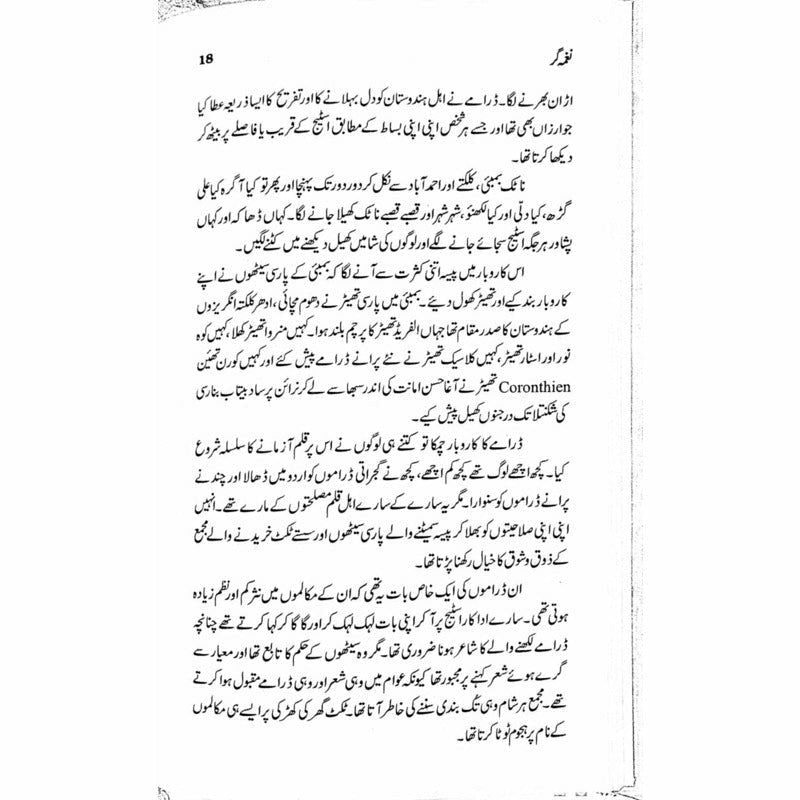 نغمہ گر
18
اڑان بھرنے لگا۔ ڈرامے نے اہل ہندوستان کو دل بہلانے کا اور تفریح کا ایسا ذریعہ عطا کیا
جو ارزاں بھی تھا اور جسے ہر شخص اپنی اپنی بساط کے مطابق اسٹیج کے قریب یا فاصلے پر بیٹھ کر
دیکھا کرتا تھا۔
ناٹک بمبئی، کلکتے اور احمد آباد سے نکل کر دور دور تک پہنچا اور پھر تو کیا آگرہ کیا علی
گڑھ، کیا دلّی اور کیا لکھنؤ، شہر شہر اور قصبے قصبے ناٹک کھیلا جانے لگا۔ کہاں ڈھاکہ اور کہاں
پشاور ہر جگہ اسٹیج سجائے جانے لگے اور لوگوں کی شامیں کھیل دیکھنے میں کٹنے لگیں۔
اس کاروبار میں پیسہ اتنی کثرت سے آنے لگا کہ بمبئی کے پارسی سیٹھوں نے اپنے
کاروبار بند کیے اور تھیٹر کھول دیئے۔ بمبئی میں پارسی تھیٹر نے دھوم مچائی، ادھر کلکتہ انگریزوں
کے ہندوستان کا صدر مقام تھا جہاں الفریڈ تھیٹر کا پرچم بلند ہوا۔ کہیں منروا تھیٹر کھلا، کہیں کوہ
نور اور اسٹار تھیٹر، کہیں کلاسیک تھیٹر نے نئے پرانے ڈرامے پیش کئے اور کہیں کورن تھئین
Coronthien تھیٹر نے آغا حسن امانت کی اندر سبھا سے لے کر نرائن پرساد بیتاب بنارسی
کی شکنتلا تک درجنوں کھیل پیش کیے۔
ڈرامے کا کاروبار چمکا تو کتنے ہی لوگوں نے اس پر قلم آزمانے کا سلسلہ شروع
کیا۔ کچھ اچھے لوگ تھے کچھ کم اچھے، کچھ نے گجراتی ڈراموں کو اردو میں ڈھالا اور چند نے
پرانے ڈراموں کو سنوارا۔ مگر یہ سارے کے سارے اہل قلم مصلحتوں کے مارے تھے۔ انہیں
اپنی اپنی صلاحیتوں کو بھلا کر پیسہ سمیٹنے والے پارسی سیٹھوں اور سستے ٹکٹ خریدنے والے مجمع
کے ذوق و شوق کا خیال رکھنا پڑتا تھا۔
ان ڈراموں کی ایک خاص بات یہ تھی کہ ان کے مکالموں میں نثر کم اور نظم زیادہ
ہوتی تھی۔ سارے اداکار اسٹیج پر آ کر اپنی بات لہک لہک کر اور گا گا کر کہا کرتے تھے چنانچہ
ڈرامے لکھنے والے کا شاعر ہونا ضروری تھا۔ مگر وہ سیٹھوں کے حکم کا تابع تھا اور معیار سے
گرے ہوئے شعر کہنے پر مجبور تھا کیونکہ عوام میں وہی شعر اور وہی ڈرامے مقبول ہوا کرتے
تھے۔ مجمع ہر شام وہی تُک بندی سننے کی خاطر آتا تھا۔ ٹکٹ گھر کی کھڑکی پر ایسے ہی مکالموں
کے نام پر ہجوم ٹوٹا کرتا تھا۔